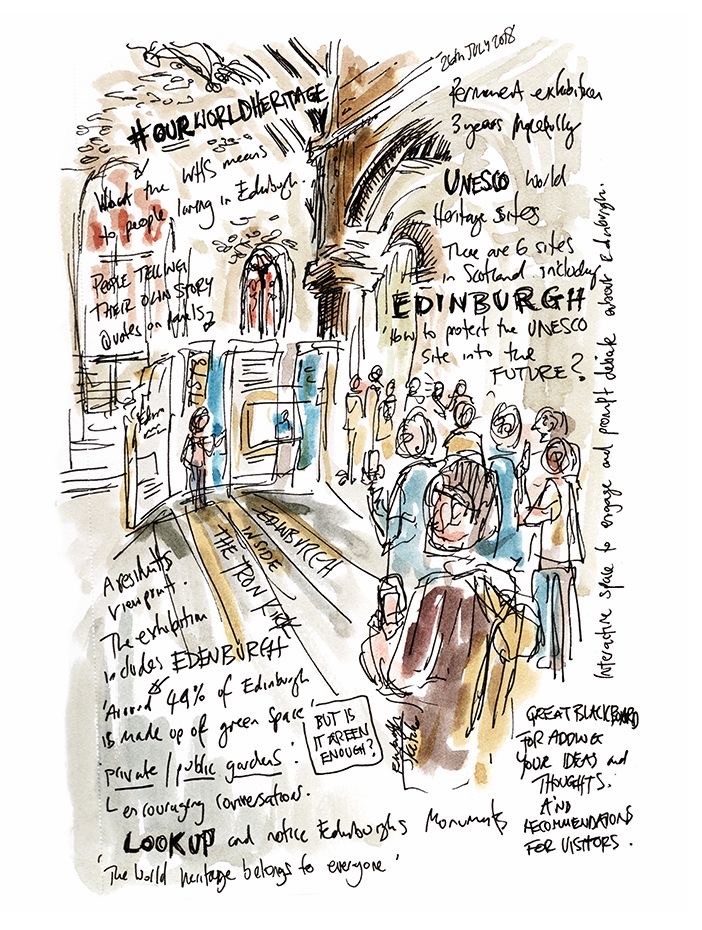 26th JULY 2018
#OURWORLDHERITAGE
What the WHS means
to people living in Edinburgh.
PEOPLE TELLING
THEIR OWN STORY
Quotes on panels
Permanent exhibition
3 years hopefully
UNESCO World
Heritage Sites
There are 6 sites
in Scotland including
EDINBURGH
'How to protect the UNESCO
site into the
FUTURE?
Interactive space to engage and prompt debate about Edinburgh.
INSIDE
THE TRON KIRK
A residents
viewpoint.
The exhibition
includes EDENBURGH
'Around 49% of Edinburgh
is made up of green space'
private / public gardens.
encouraging conversations.
BUT IS
IT GREEN
ENOUGH?
GREAT BLACKBOARD
FOR ADDING
YOUR IDEAS and
THOUGHTS.
AND
RECOMMENDATIONS
FOR VISITORS.
LOOKUP and notice Edinburghs Monuments
'The world heritage belongs to everyone'